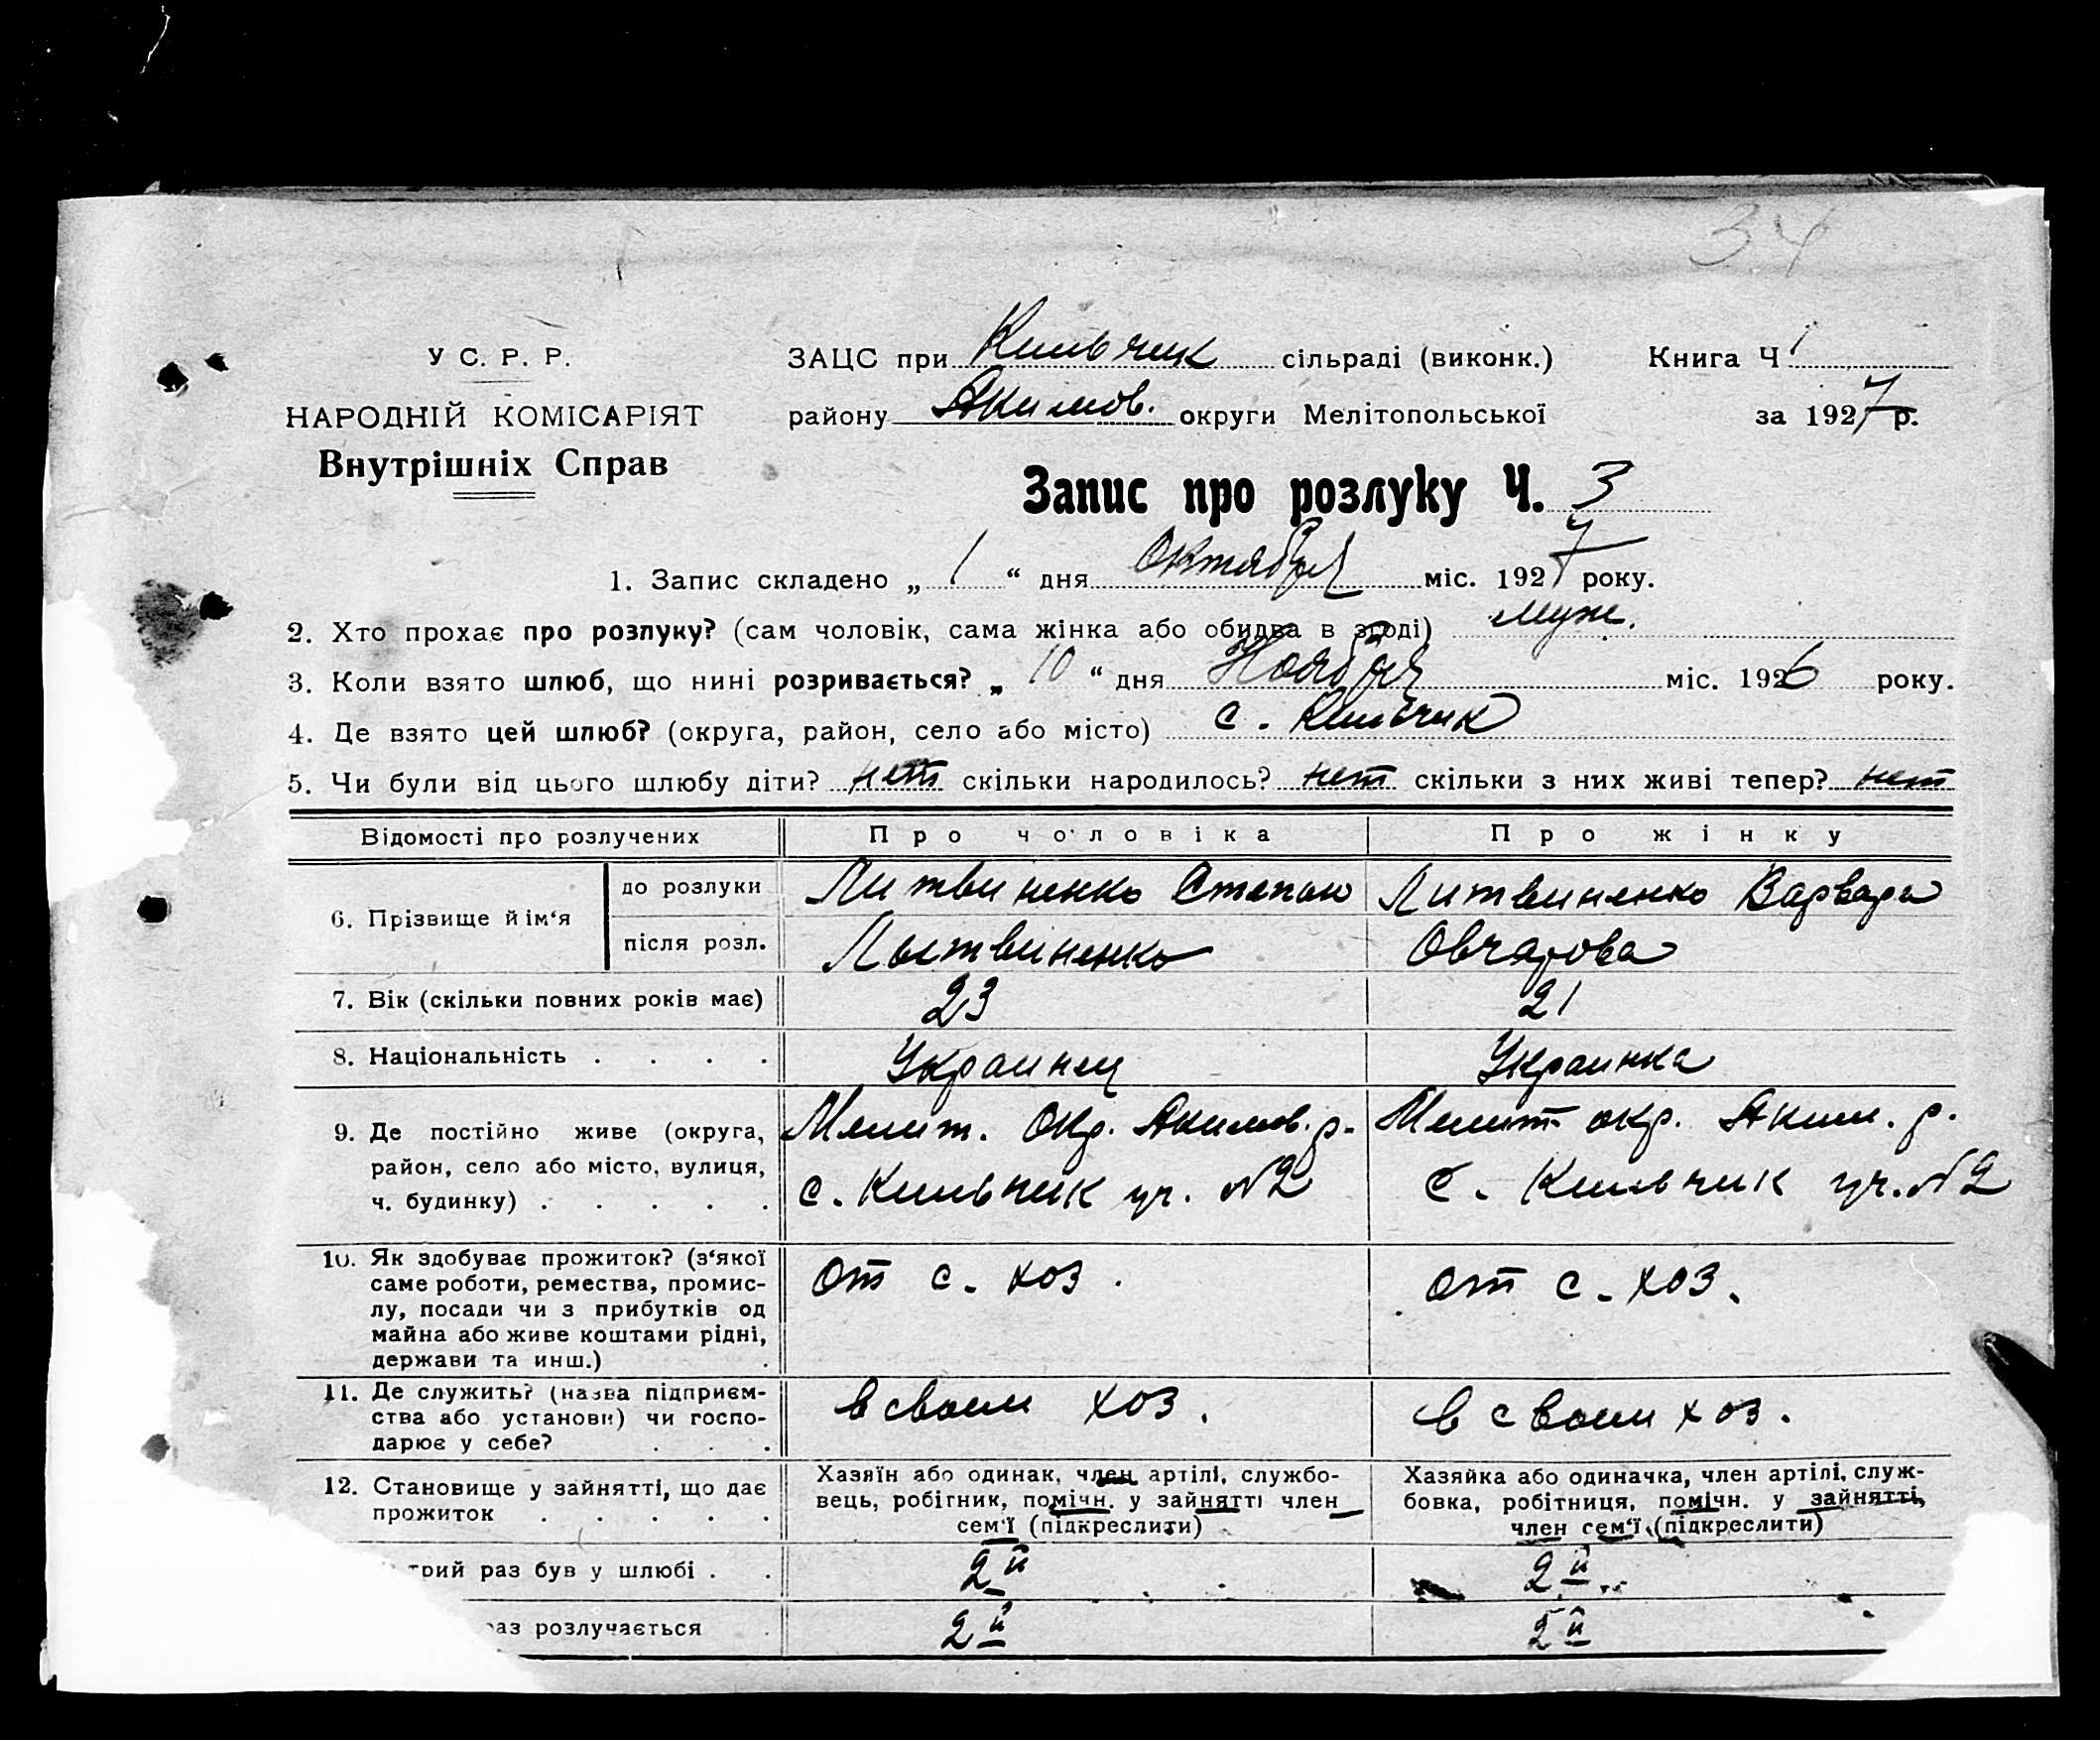 34
У С. Р. Р.
НАРОДНІЙ КОМІСАРІЯТ
Внутрішніх Справ
ЗАЦС при Кильчик сільраді (виконк.)
Книга Ч 1
району Акимов. округи Мелітопольської
за 1927 р.
Запис про розлуку Ч. 3
1. Запис складено „ 1 “ дня Октября міс. 1927 року.
2. Хто прохає про розлуку? (сам чоловік, сама жінка або обидва в згоді) муж.
3. Коли взято шлюб, що нині розривається? „ 10 “ дня Ноября міс. 1926 року.
4. Де взято цей шлюб? (округа, район, село або місто) с. Кильчик
5. Чи були від цього шлюбу діти? нет скільки народилось? нет скільки з них живі тепер? нет
Відомості про розлучених
Про чоловіка
Про жінку
6. Прізвище й ім‘я
до розлуки
Литвиненко Степан
Литвиненко Варвара
після розл.
Лытвиненко
Овчарова
7. Вік (скільки повних років має)
23
21
8. Національність . . . .
Украинец
Украинка
9. Де постійно живе (округа,
район, село або місто, вулиця,
ч. будинку) . . . . .
Мелит. Окр. Акимов. р.
с. Кильчик уч. №2
Мелит окр. Аким. р.
с. Кильчик уч. №2
10. Як здобуває прожиток? (з‘якої
саме роботи, ремества, промис-
лу, посади чи з прибутків од
майна або живе коштами рідні,
держави та инш.) .
от с. хоз.
от с. хоз.
11. Де служить? (назва підприєм-
ства або установи) чи госпо-
дарює у себе? . . .
в своем хоз.
в своем хоз.
12. Становище у зайнятті, що дає
прожиток . . . . .
Хазяїн або одинак, член артілі, службо-
вець, робітник, помічн. у зайнятті член
сем‘ї (підкреслити)
Хазяйка або одиначка, член артілі, служ-
бовка, робітниця, помічн. у зайнятті,
член сем‘ї (підкреслити)
трий раз був у шлюбі . .
2й
2й
раз розлучається .
2й
2й